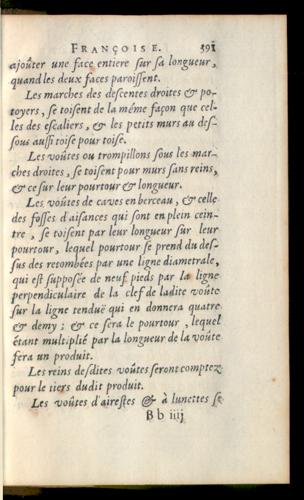 FRANÇOISE. 391
ajoûter une face entiere sur sa longueur,
quand les deux faces paroissent.
Les marches des descentes droites & po-
toyers, se toisent de la même façon que cel-
les des escaliers, & les petits murs au des-
sous aussi toise pour toise.
Les voûtes ou trompillons sous les mar-
ches droites, se toisent pour murs sans reins,
& ce sur leur pourtour & longueur.
Les voûtes de caves en berceau, & celle
des fosses d'aisances qui sont en plein cein-
tre, se toisent par leur longueur sur leur
pourtour, lequel pourtour se prend du des-
sus des retombées par une ligne diametrale,
qui est supposée de neuf pieds par la ligne
perpendiculaire de la clef de ladite voûte
sur la ligne tenduë qui en donnera quatre
& demy ; & ce sera le pourtour, lequel
étant multiplié par la longueur de la voûte
fera un produit.
Les reins desdites voûtes seront comptez
pour le tiers dudit produit.
Les voûtes d'airestes & à lunettes se
B b iiij